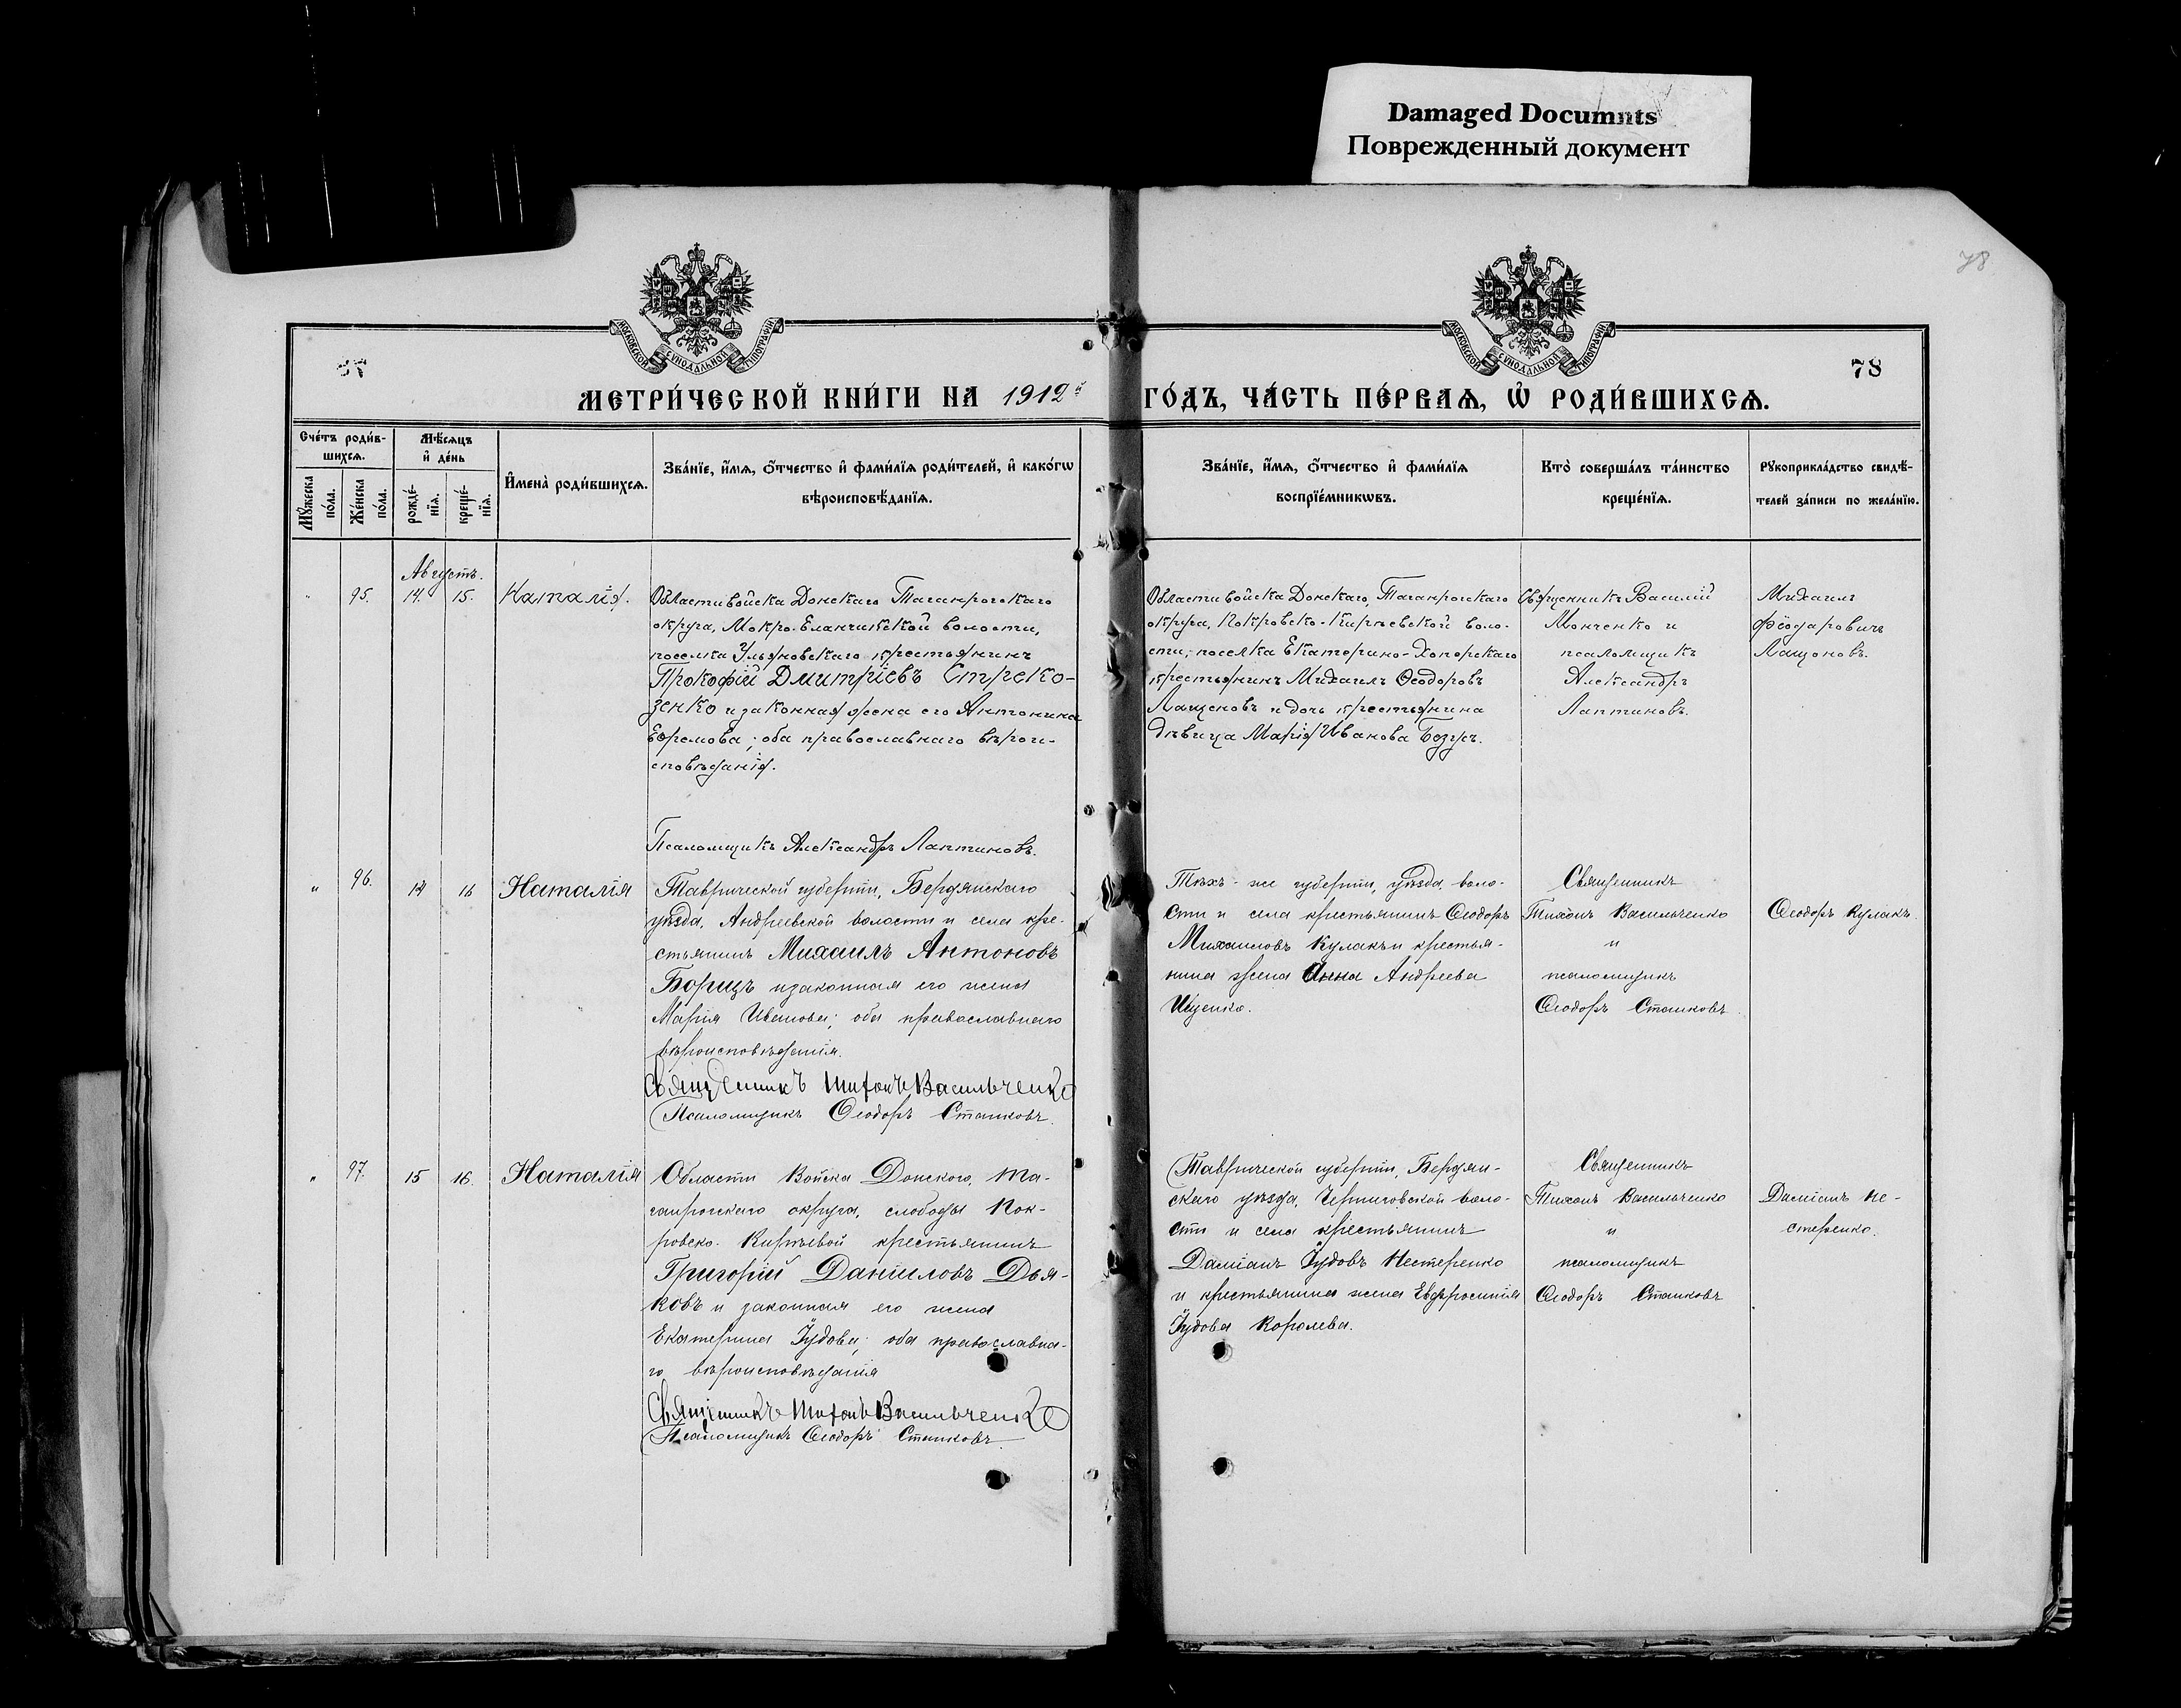 Damaged Documnts
Поврежденный документ
78
МОСКОВСКОЙ СѴНОДАЛЬНОЙ ТИПОГРАФІИ
МОСКОВСКОЙ СѴНОДАЛЬНОЙ ТИПОГРАФІИ
78
МЕТРИ́ЧЕСКОЙ КНИ́ГИ НА 1912й ГО́ДЪ, ЧА́СТЬ ПЕ́РВАѦ, Ѡ҆ РОДИ́ВШИХСѦ.
Сче́тъ роди́в-
шихсѧ.
Мѣ́сѧцъ
и҆ де́нь
Мꙋ́жеска по́ла.
Же́нска по́ла.
рожде́-
нїѧ.
креще́-
нїѧ.
И҆мена̀ роди́вшихсѧ.
Зва́нїе, и҆́мѧ, ѻ҆́тчество и҆ фами́лїѧ роди́телей, и҆ како́гѡ
вѣроисповѣ́данїѧ.
Зва́нїе, и҆́мѧ, ѻ҆́тчество и҆ фами́лїѧ
воспрїе́мникѡвъ.
Кто̀ соверша́лъ та́инство
креще́нїѧ.
Рꙋкоприкла́дство свидѣ́-
телей за́писи по жела́нїю.
Августъ.
" 95. 14. 15. Наталія.
Области войска Донскаго Таганрогскаго
округа, Мокро-Еланчикской волости,
поселка Ульяновскаго крестьянинъ
Прокофій Дмитріевъ Стреко-
зенко и законная жена его Антонина
Ефремова; оба православнаго вѣрои-
сповѣданія.
Псаломщикъ Александръ Лаптиновъ.
Области войска Донскаго, Таганрогскаго
округа, Покровско-Кирѣевской воло-
сти, поселка Екатерино-Хоперскаго
крестьянинъ Михаилъ Ѳеодоровъ
Лащеновъ и дочь крестьянина
дѣвица Марія Иванова Бозуръ.
Священникъ Василій
Монченко и
псаломщикъ
Александръ
Лаптиновъ.
Михаилъ
Фёодаровичъ
Лащоновъ.
" 96. 14 16 Наталія
Таврической губерніи, Бердянскаго
уѣзда, Андреевской волости и села кре-
стьянинъ Михаилъ Антоновъ
Борищъ и законная его жена
Марія Иванова; оба православнаго
вѣроисповѣданія.
Священникъ Тихонъ Васильченко
Псаломщикъ Ѳеодоръ Станковъ.
Тѣхъ-же губерніи, уѣзда, воло-
сти и села крестьянинъ Ѳеодоръ
Михаиловъ Кулакъ и крестья-
нина жена Анна Андреева
Ищенко.
Священникъ
Тихонъ Васильченко
и
псаломщикъ
Ѳеодоръ Станковъ.
Ѳеодоръ Кулакъ.
" 97. 15 16. Наталія
Области Войска Донского, Та-
ганрогскаго округа, слободы Пок-
ровско-Кирѣевой крестьянинъ
Григорій Даніиловъ Дья-
ковъ и законная его жена
Екатерина Іудова; оба православна-
го вѣроисповѣданія
Священникъ Тихонъ Васильченко
Псаломщикъ Ѳеодоръ Станковъ.
Таврической губерніи, Бердян-
скаго уѣзда, Черниговской воло-
сти и села крестьянинъ
Даміанъ Іудовъ Нестеренко
и крестьянина жена Евфросинія
Іудова Королева.
Священникъ
Тихонъ Васильченко
и
псаломщикъ
Ѳеодоръ Станковъ
Даміанъ Не-
стеренко.